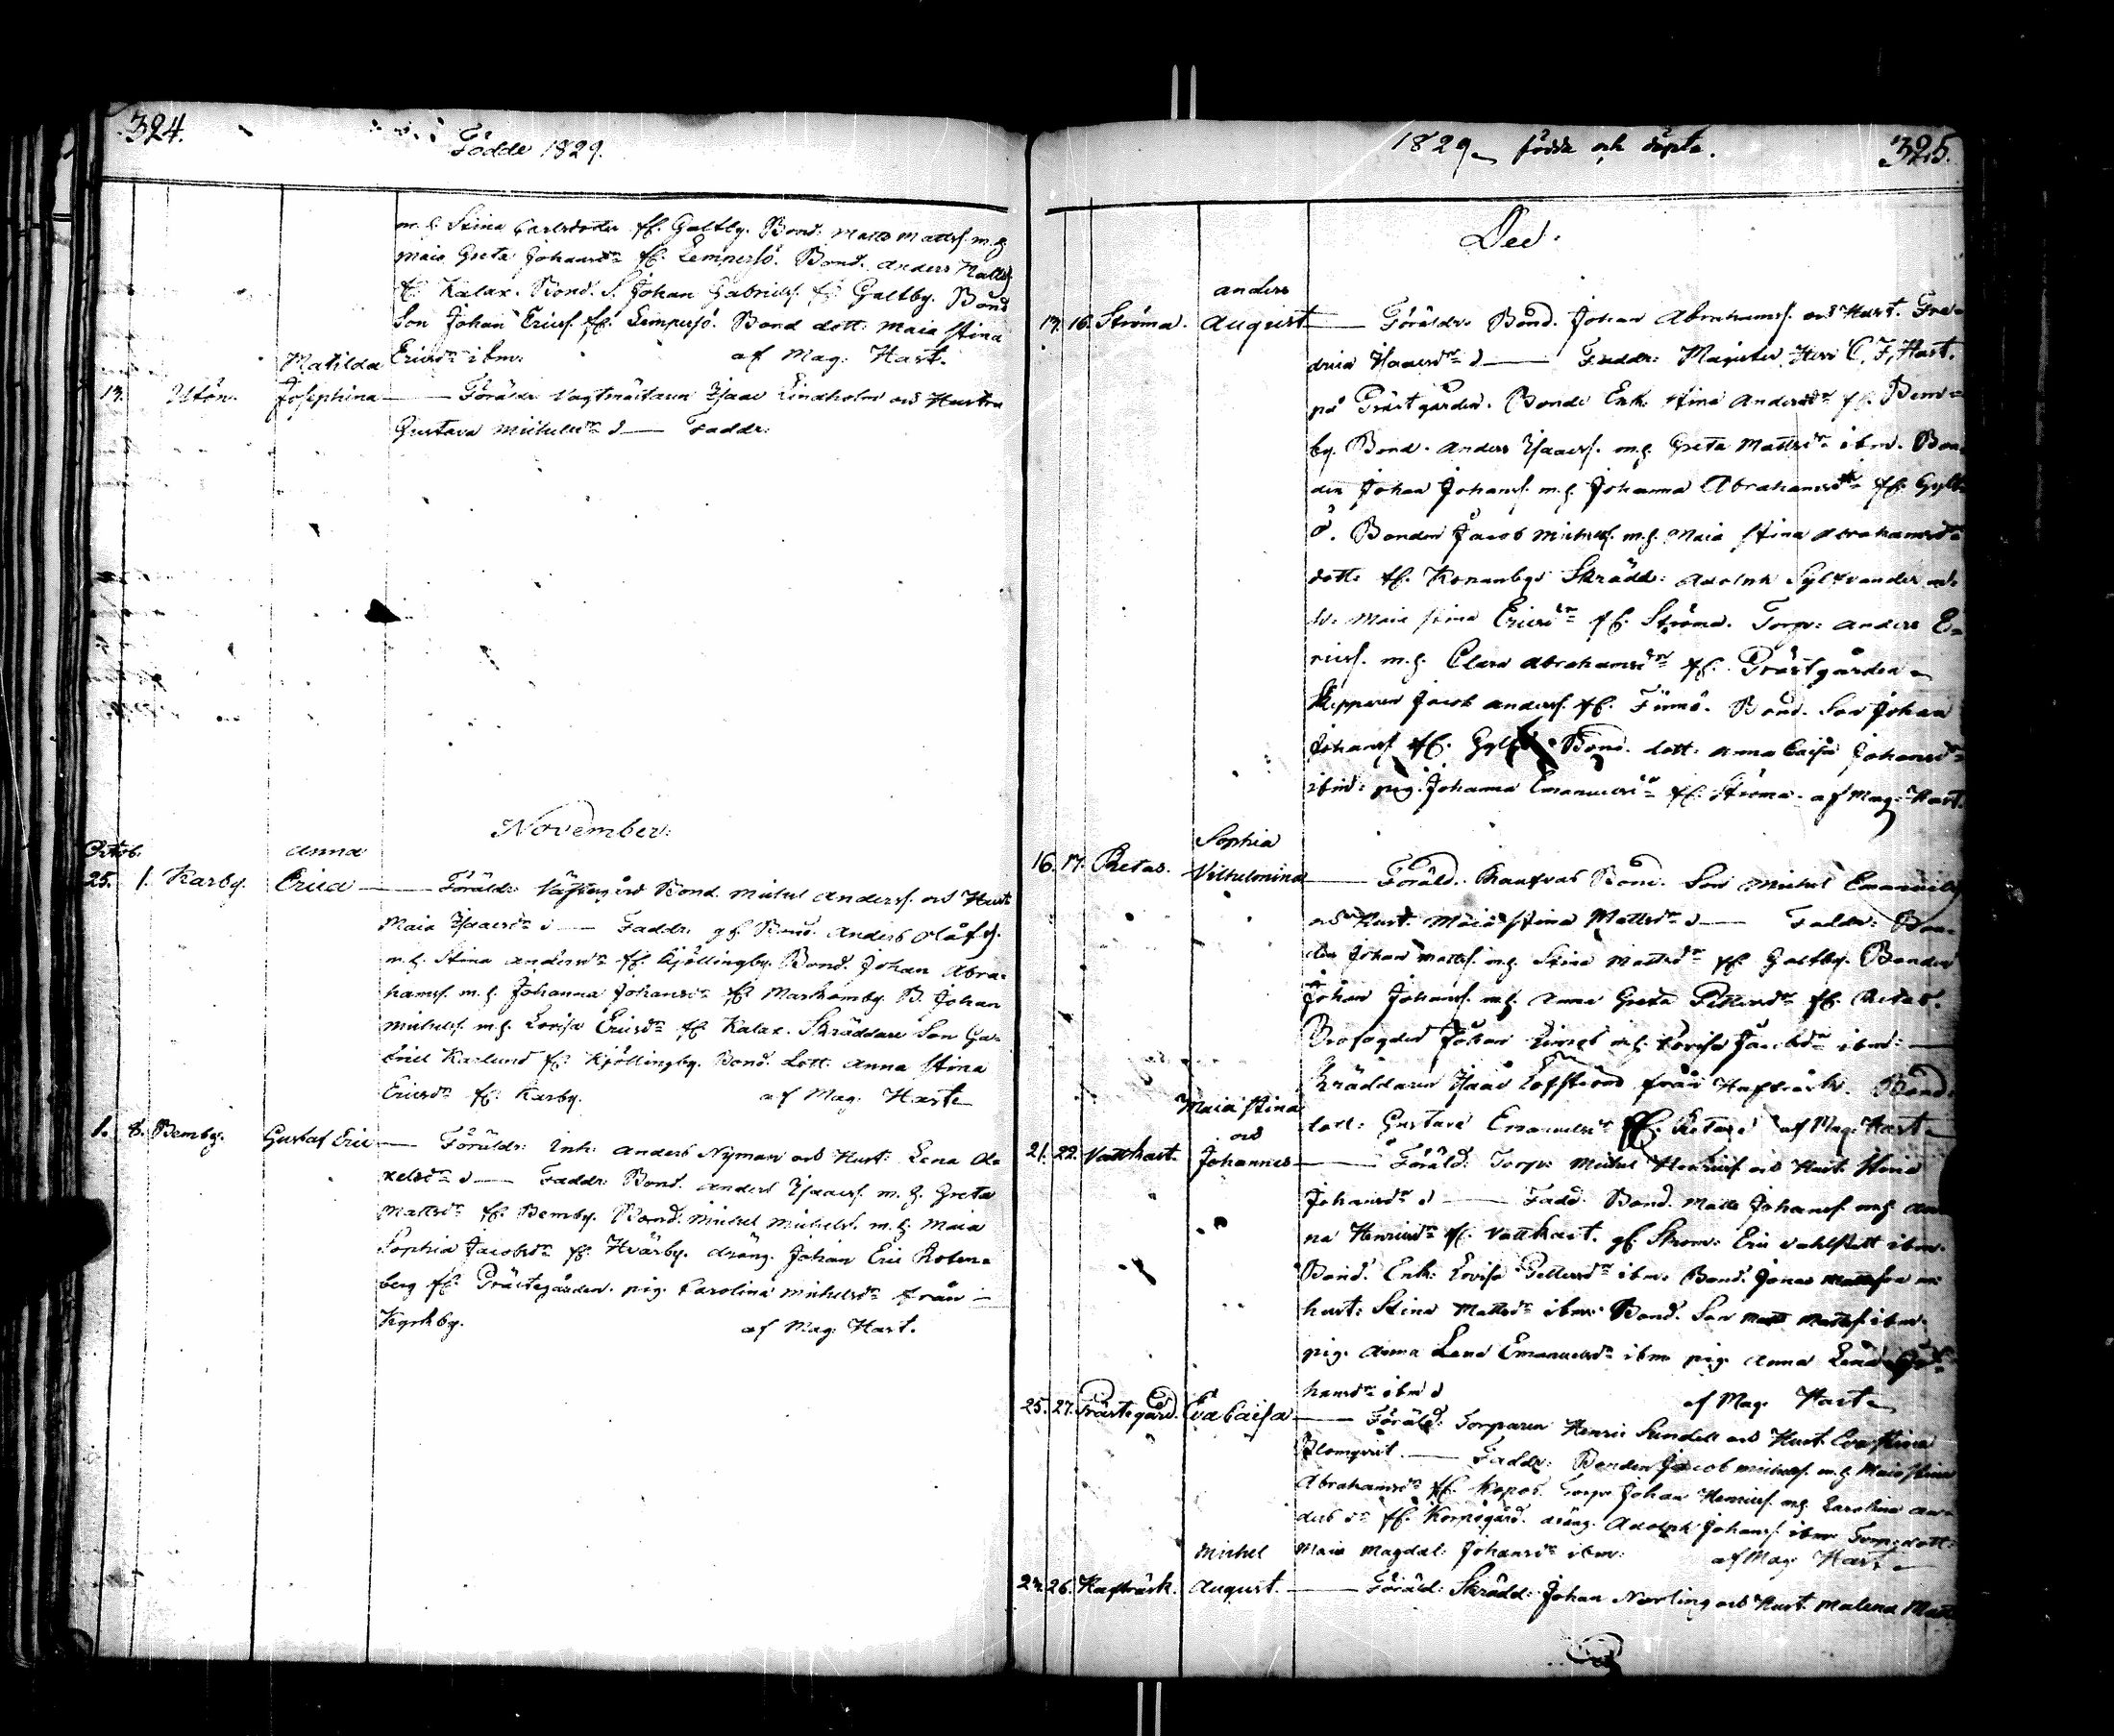 324.
Födde 1829.
m. h. Stina Carlsdoter fr. Galtby. Bond: Matts Mattss. m. h.
Maia Greta Johansdr fr. Lempersö. Bond. Anders Matts.
fr. Kalax. Bond. S. Johan Gabrielss. fr. Galtby. Bond
Son Johan Ericss. fr. Lempersö. Bond dott: Maia Stina
Ericsdr ibm: af Mag. Hart.
Matilda
13. Utön. Josephina — Föräldr Vagtmästaren Isaac Lindholm och Hustru
Gustava Michelsdr — Faddr:
November:
Octob. Anna
25. 1. Karby. Erica — Föräldr. Bond. Michel Anderss. och Hust
Maia Isaacsdr — Faddr. gf. Bond. Anders Olofss.
m. h. Stina Andersdr fr. Kjöllingby. Bond. Johan Abra-
hamss. m. h. Johanna Johansdr fr. Marskomby. B. Johan
Michelss. m. h. Lovisa Ericsdr fr. Kalax. Skräddare Son Ga-
briel Karlund fr. Kjöllingby. Bond. Dott. Anna Stina
Ericsdr fr. Karby. af Mag. Hart
1. 8. Bemby. Gustaf Eric — Föräldr: Inh: Anders Nyman och Hust: Lena Ax-
elsdr — Faddr: Bond. Anders Isaacss. m. h. Greta
Mattsdr fr. Bemby. Bond. Michel Michelss. m. h. Maia
Sophia Jacobsdr fr. Hvärby. dräng. Johan Eric Rosen-
berg fr. Prästegården. pig. Carolina Michelsdr från
Kyrkby. af Mag: Hart.
1829 födda och döpta. 325.
Dec.
Anders
13. 16. Ströma. August — Föräldr. Bond. Johan Abrahamss. och Hust. Fre-
drica Isaacsdr — Faddr: Magister Herr C. F. Hart.
på Prästgården. Bonde Enk. Stina Andersdr fr. Bem-
by. Bond. Anders Isaacss. m. h. Greta Mattsdr ibm. Bon-
den Johan Johanss. m. h. Johanna Abrahamsdr fr. Gylt-
ö. Bonden Jacob Michelss. m. h. Maia Stina Abrahamsdr
dott: fr. Konanbys Skrädd: Adolph Sylvander m.
h. Maia Stina Ericsdr fr. Ströma. Torp: Anders E-
ricss. m. h. Clara Abrahamsdr fr. Prästgården
Skepparen Jacob Anderss. fr. Finnö. Bond. Son Johan
Johanss. fr. Bond. dott: Anna Caisa Johansdr
ibm: pig. Johanna Emanuelsdr fr. Ströma. af Mag: Hart.
Sophia
16. 17. Retas. Vilhelmina — Föräld. Bond. Son Michel Emanuels
och Hust. Maia Stina Mattsdr — Faddr: Bon-
den Johan Mattss. m. h. Stina Mattsdr fr. Galtby. Bonden
Johan Johanss. m. h. Anna Greta Pettersdr fr. Retas.
Brofogden Johan m. h. Lovisa Jacobsdr ibm:
Skräddaren Isaac Löfström från Hafträsk. Bond.
dott: Gustava Emanuelsdr fr. Retais af Mag: Hart
Maia Stina
och
21. 22. Vattkast. Johannes — Föräld: Torp: Michel Henricss. och Hust. Stina
Johansdr — Fadd. Bond. Matts Johanss. m. h. An-
na Henricsdr fr. Vattkast. gf. Skom: Eric Vahlstett ibm.
Bond. Enk: Lovisa Pettersdr ibm: Bond. Jonas Mattsson m:
hust: Stina Mattsdr ibm: Bond. Son Matts Mattss. ibm.
pig. Anna Lena Emanuelsdr ibm pig. Anna Lena Jo-
hansdr ibm af Mag. Hart
25. 27. Prästegård. Eva Caisa — Föräld: Torparen Henric Sundell och Hust. Eva Stina
Blomqvist. — Faddr: Bonden Jacob Michelss. m. h. Maia Stina
Abrahamsdr fr. Kopos. Torp: Johan Henricss. m. h. Carolina An-
dersdr fr. Korpogård. dräng. Adolph Johanss. ibm Torp. dott:
Maia Magdal: Johansdr ibm: af Mag. Hart
Michel
24. 26. Hafträsk. August. — Föräld: Skrädd: Johan Norling och Hust. Malena Matts